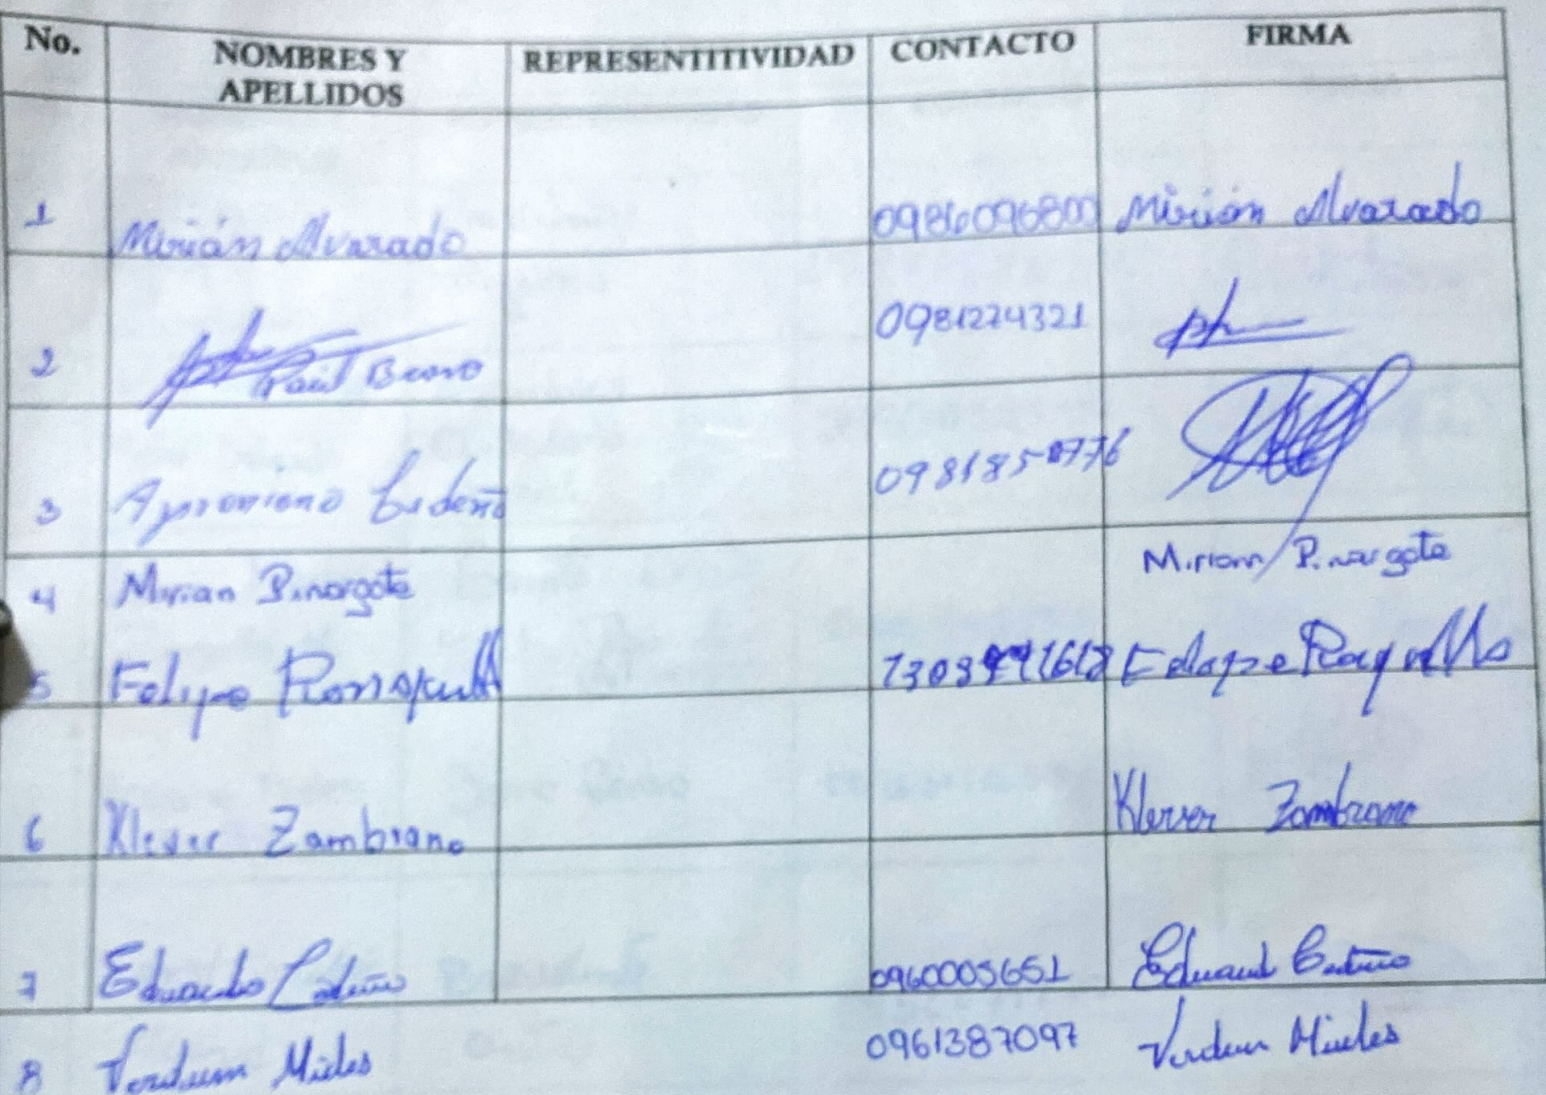 No. NOMBRES Y APELLIDOS REPRESENTITIVIDAD CONTACTO FIRMA
1 Mirián Alvarado 0986096800 Mirián Alvarado
2 Raúl Bravo 0981274321
3 Aproniano Cedeño 098185 776
4 Mirian Pinargote Miriam Pinargote
5 Felipe
6 Klever Zambrano Klever Zambrano
7 Eduardo Cedeño 0960005651 Eduard Cedeño
8 Verdum Mieles 0961387097 Verdum Mieles